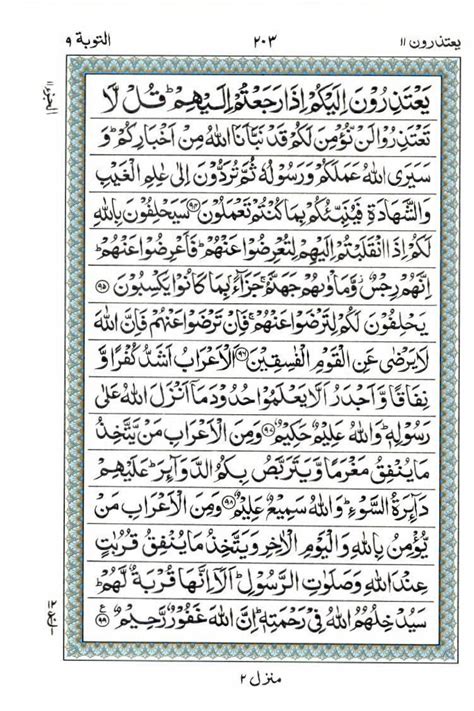 يعتذرون ١١ ٢٠٣ التوبة ٩
يَعْتَذِرُوْنَ اِلَيْكُمْ اِذَا رَجَعْتُمْ اِلَيْهِمْ ؕ قُلْ لَّا
تَعْتَذِرُوْا لَنْ نُّؤْمِنَ لَكُمْ قَدْ نَبَّاَنَا اللّٰهُ مِنْ اَخْبَارِكُمْ ؕ وَ
سَيَرَى اللّٰهُ عَمَلَكُمْ وَرَسُوْلُهٗ ثُمَّ تُرَدُّوْنَ اِلٰى عٰلِمِ الْغَيْبِ
وَالشَّهَادَةِ فَيُنَبِّئُكُمْ بِمَا كُنْتُمْ تَعْمَلُوْنَ ﴿۹۴﴾ سَيَحْلِفُوْنَ بِاللّٰهِ
لَكُمْ اِذَا انْقَلَبْتُمْ اِلَيْهِمْ لِتُعْرِضُوْا عَنْهُمْ ؕ فَاَعْرِضُوْا عَنْهُمْ ؕ
اِنَّهُمْ رِجْسٌ ؗ وَّمَاْوٰىهُمْ جَهَنَّمُ ۚ جَزَآءًۢ بِمَا كَانُوْا يَكْسِبُوْنَ ﴿۹۵﴾
يَحْلِفُوْنَ لَكُمْ لِتَرْضَوْا عَنْهُمْ ۚ فَاِنْ تَرْضَوْا عَنْهُمْ فَاِنَّ اللّٰهَ
لَا يَرْضٰى عَنِ الْقَوْمِ الْفٰسِقِيْنَ ﴿۹۶﴾ اَلْاَعْرَابُ اَشَدُّ كُفْرًا وَّ
نِفَاقًا وَّ اَجْدَرُ اَلَّا يَعْلَمُوْا حُدُوْدَ مَآ اَنْزَلَ اللّٰهُ عَلٰى
رَسُوْلِهٖ ؕ وَاللّٰهُ عَلِيْمٌ حَكِيْمٌ ﴿۹۷﴾ وَمِنَ الْاَعْرَابِ مَنْ يَّتَّخِذُ
مَا يُنْفِقُ مَغْرَمًا وَّيَتَرَبَّصُ بِكُمُ الدَّوَآئِرَ ؕ عَلَيْهِمْ
دَآئِرَةُ السَّوْءِ ؕ وَاللّٰهُ سَمِيْعٌ عَلِيْمٌ ﴿۹۸﴾ وَمِنَ الْاَعْرَابِ مَنْ
يُّؤْمِنُ بِاللّٰهِ وَالْيَوْمِ الْاٰخِرِ وَيَتَّخِذُ مَا يُنْفِقُ قُرُبٰتٍ
عِنْدَ اللّٰهِ وَصَلَوٰتِ الرَّسُوْلِ ؕ اَلَآ اِنَّهَا قُرْبَةٌ لَّهُمْ ؕ
سَيُدْخِلُهُمُ اللّٰهُ فِىْ رَحْمَتِهٖ ؕ اِنَّ اللّٰهَ غَفُوْرٌ رَّحِيْمٌ ﴿۹۹﴾ ع
الجزء ١١
منزل ٢